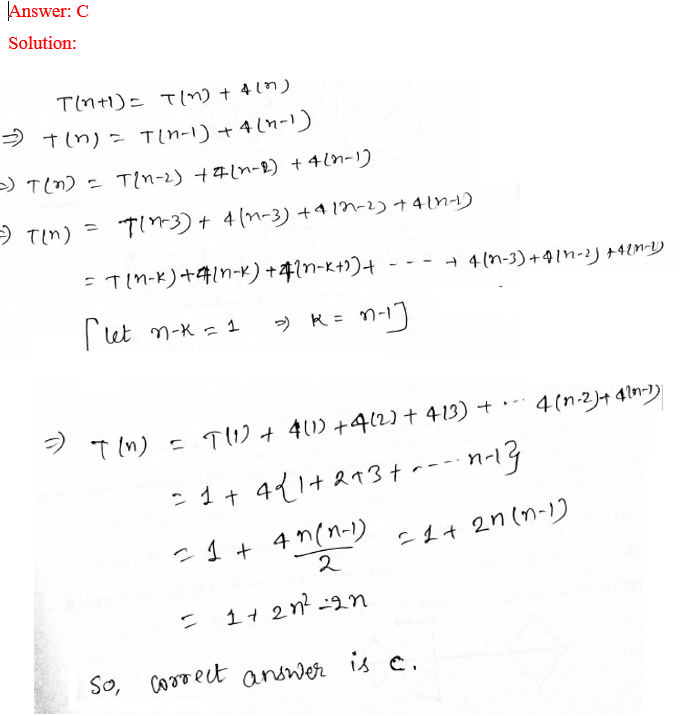 Answer: C
Solution:
T(n+1) = T(n) + 4(n)
⇒ T(n) = T(n-1) + 4(n-1)
⇒ T(n) = T(n-2) + 4(n-2) + 4(n-1)
⇒ T(n) = T(n-3) + 4(n-3) + 4(n-2) + 4(n-1)
= T(n-k) + 4(n-k) + 4(n-k+1) + - - - + 4(n-3) + 4(n-2) + 4(n-1)
[let n-k = 1 ⇒ k = n-1]
⇒ T(n) = T(1) + 4(1) + 4(2) + 4(3) + ... 4(n-2) + 4(n-1)
= 1 + 4{1+2+3+ ---- n-1}
= 1 + 4 n(n-1)/2 = 1 + 2n(n-1)
= 1 + 2n² - 2n
So, correct answer is c.